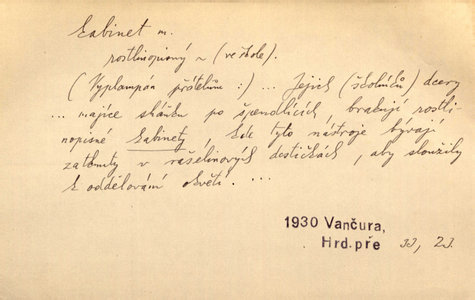 kabinet m.
rostlinopisný ~ (ve škole).
(Vyplampán přátelům :) ... Jejich (školníků) dcery
... majíce sháňku po špendlících brakují rostli-
nopisné kabinety, kde tyto nástroje bývají
zatknuty v rašelinových destičkách, aby sloužily
k oddělování okvětí. ...
1930 Vančura,
Hrd.pře II, 23.